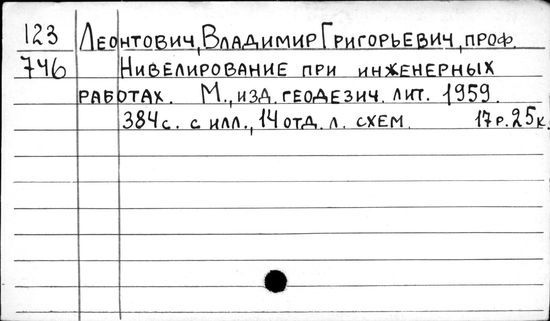 123 Леонтович, Владимир Григорьевич, проф.
746 Нивелирование при инженерных
работах. М., изд. геодезич. лит. 1959.
384 с. с илл., 14 отд. л. схем. 17 р. 25 к.